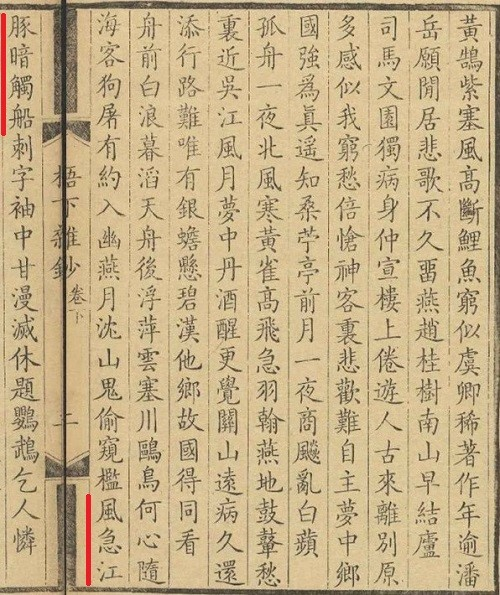 黃鵠紫塞風高斷鯉魚窮似虞卿稀著作年逾潘
岳願閒居悲歌不久畱燕趙桂樹南山早結廬
司馬文園獨病身仲宣樓上倦遊人古來離別原
多感似我窮愁倍愴神客裏悲歡難自主夢中鄉
國強爲眞遥知桑苧亭前月一夜商飈亂白蘋
孤舟一夜北風寒黃雀高飛急羽翰燕地鼓鼙愁
裏近吳江風月夢中丹酒醒更覺關山遠病久還
添行路難唯有銀蟾懸碧漢他鄉故國得同看
舟前白浪暮滔天舟後浮萍雲塞川鷗鳥何心隨
海客狗屠有約入幽燕月沈山鬼偷窺檻風急江
梧下雜鈔 卷下 二
豚暗觸船刺字袖中甘漫滅休題鸚鵡乞人憐